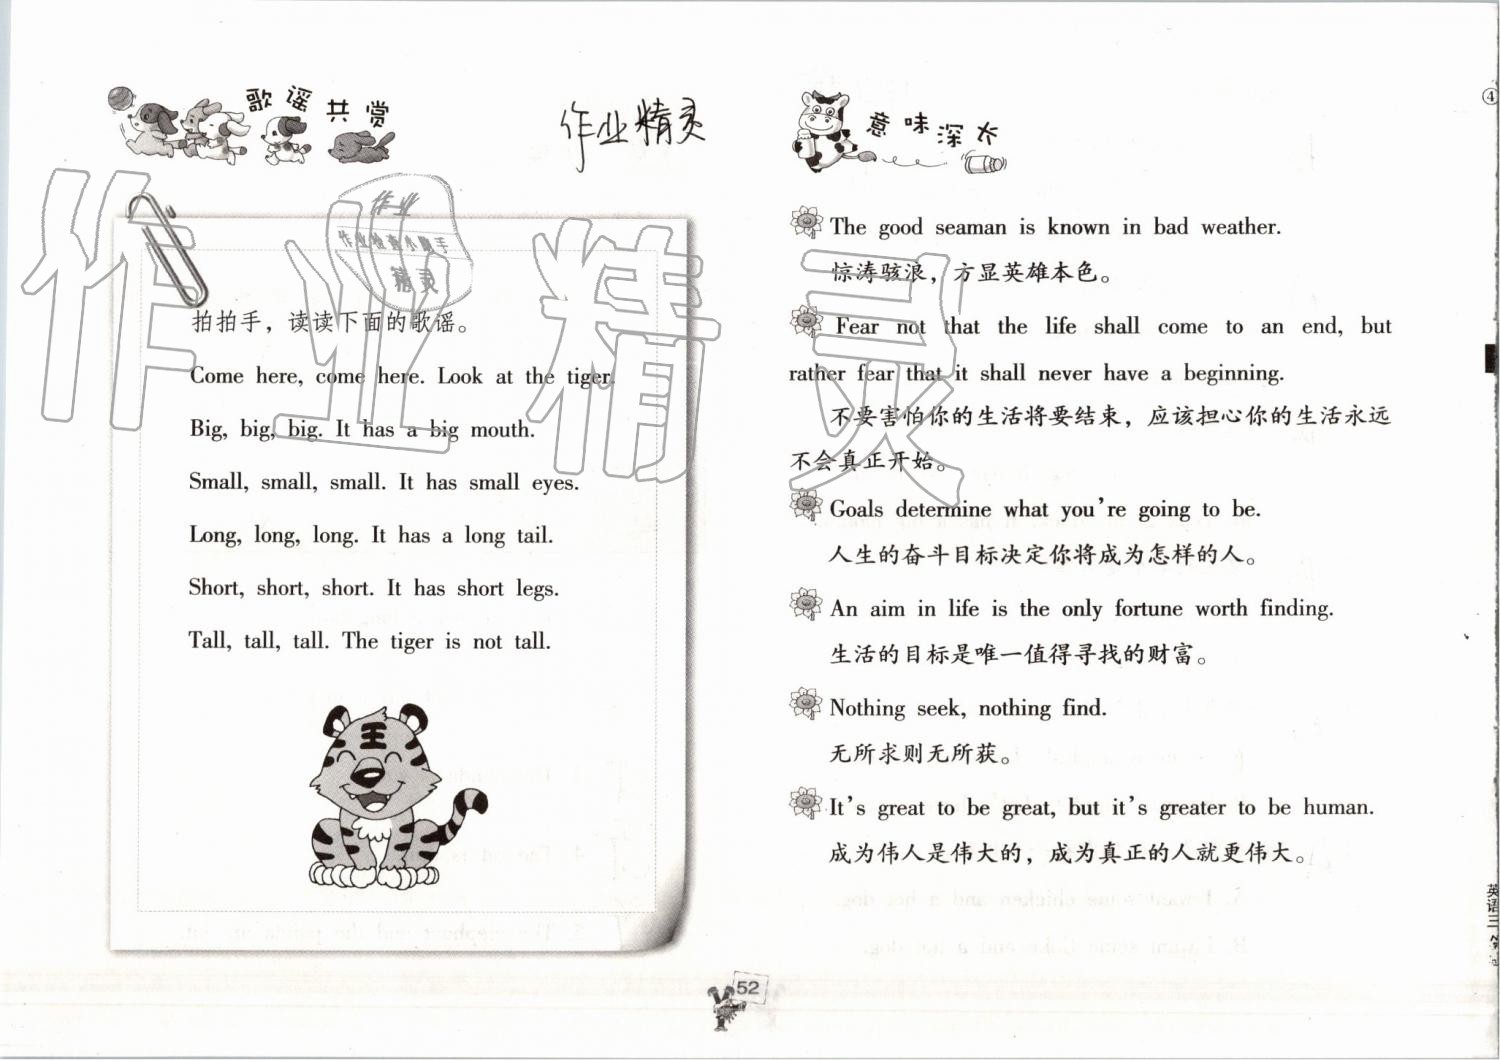 歌谣共赏
作业精灵
作业
作业检查小助手
精灵
拍拍手，读读下面的歌谣。
Come here, come here. Look at the tiger.
Big, big, big. It has a big mouth.
Small, small, small. It has small eyes.
Long, long, long. It has a long tail.
Short, short, short. It has short legs.
Tall, tall, tall. The tiger is not tall.
王
作业精灵
意味深长
The good seaman is known in bad weather.
惊涛骇浪，方显英雄本色。
Fear not that the life shall come to an end, but
rather fear that it shall never have a beginning.
不要害怕你的生活将要结束，应该担心你的生活永远
不会真正开始。
Goals determine what you're going to be.
人生的奋斗目标决定你将成为怎样的人。
An aim in life is the only fortune worth finding.
生活的目标是唯一值得寻找的财富。
Nothing seek, nothing find.
无所求则无所获。
It's great to be great, but it's greater to be human.
成为伟人是伟大的，成为真正的人就更伟大。
52
④
英语三